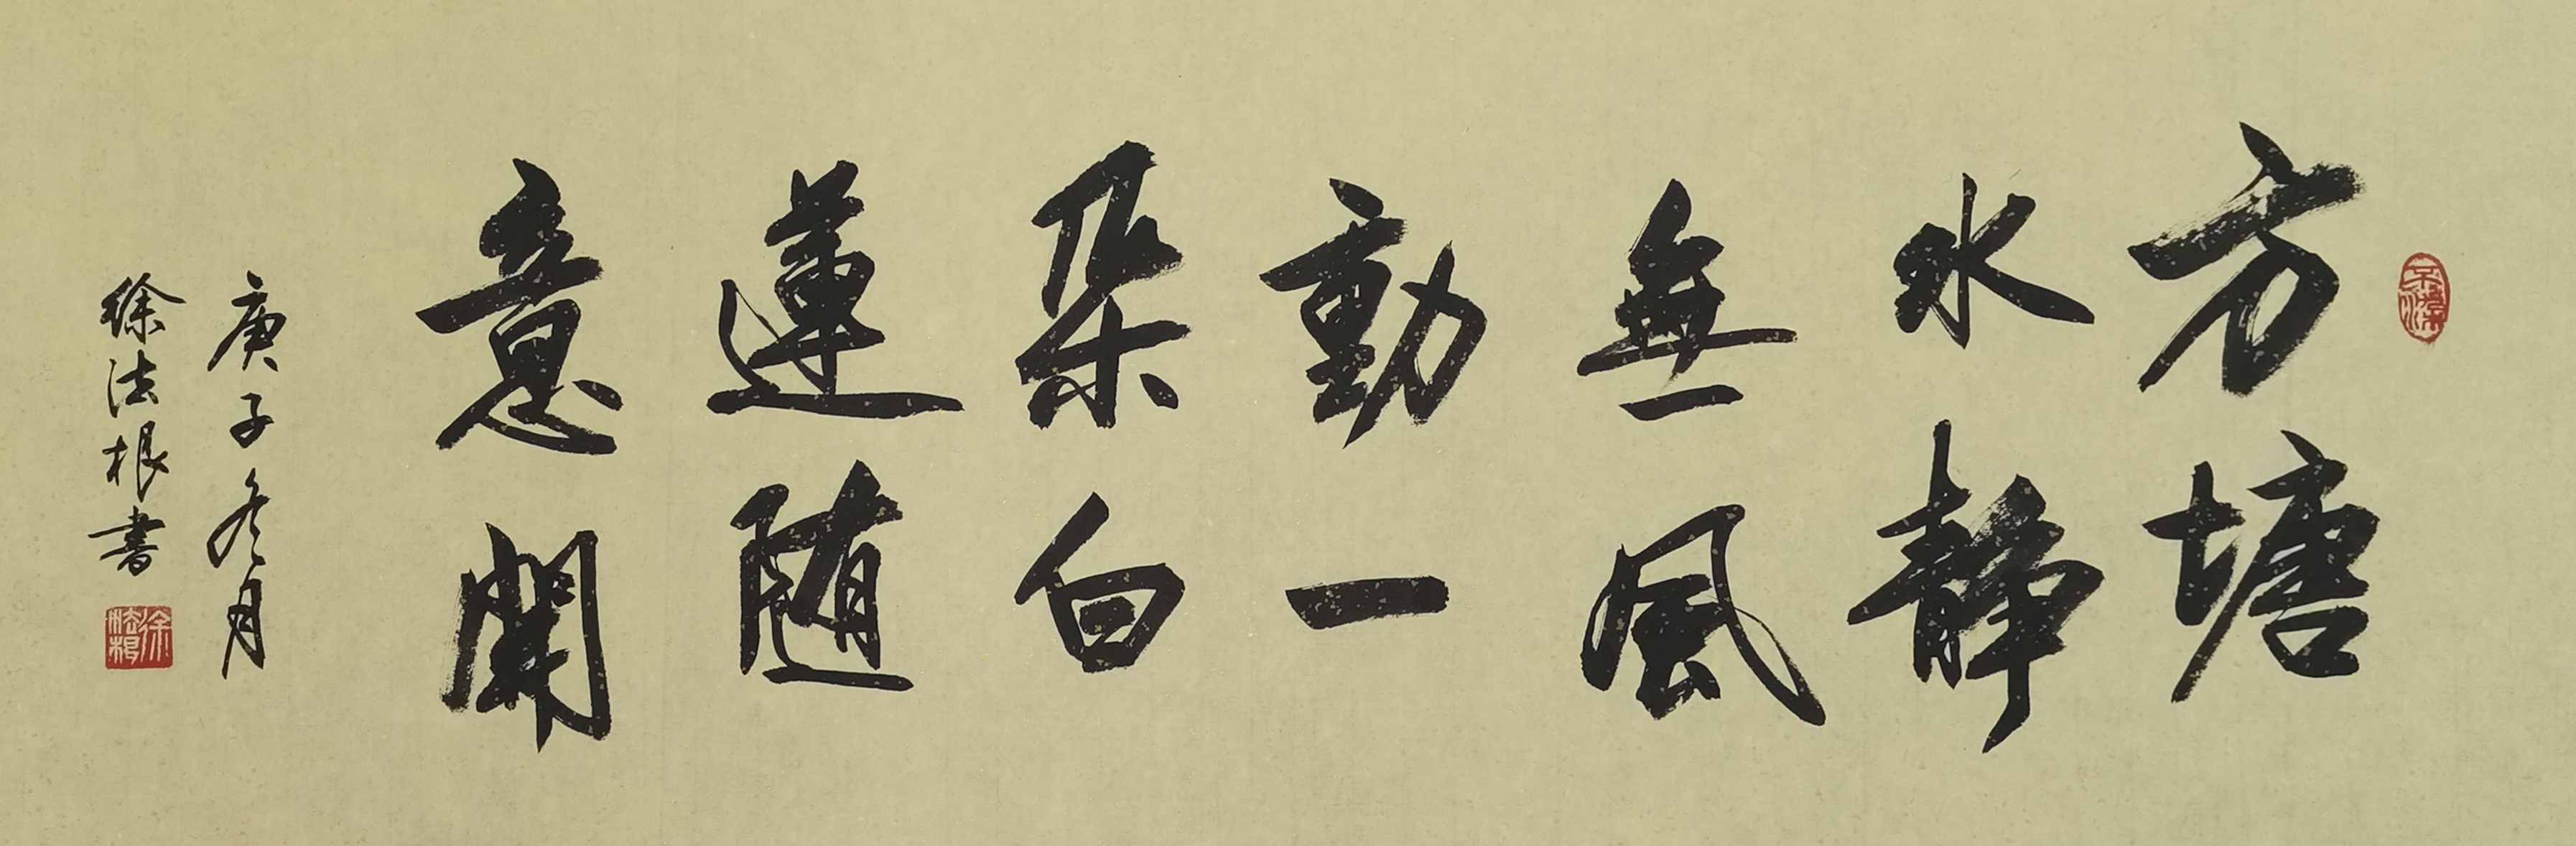 方塘
水静
無風
動一
朵白
蓮随
意開
庚子冬月
徐法根書
徐法根